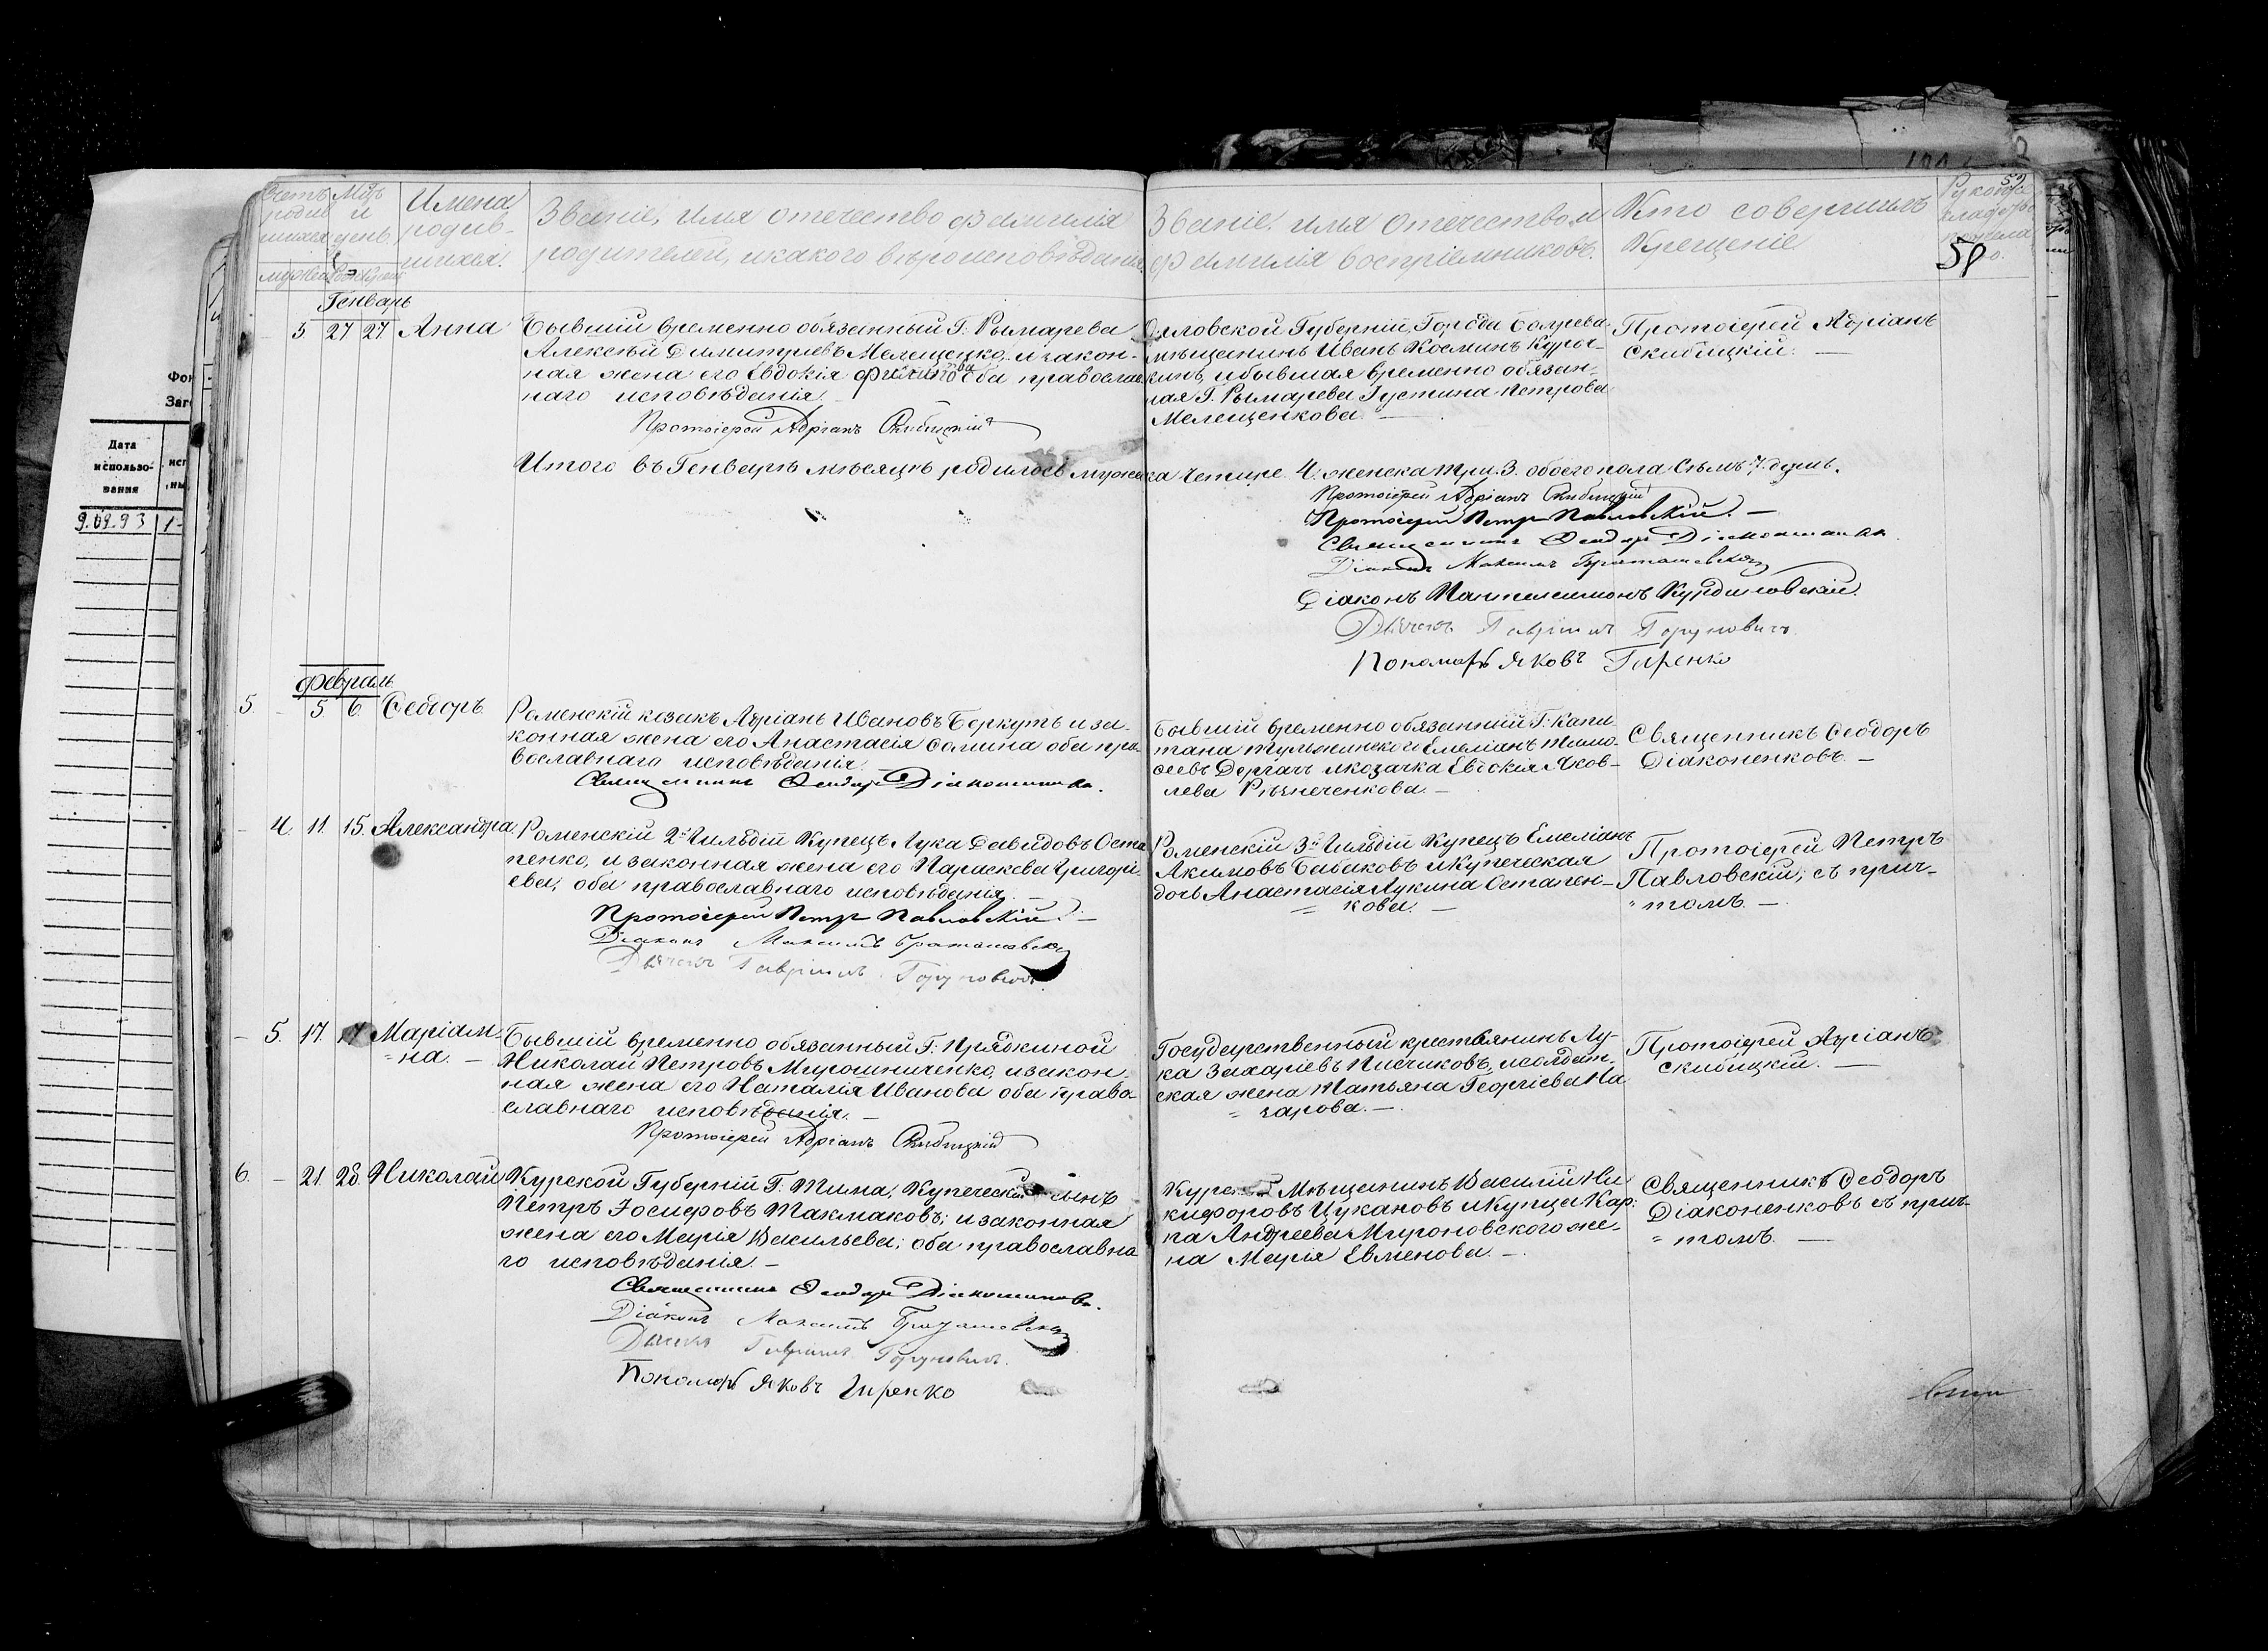 Фон
Заго
Дата
использо-
вания
9.09.93
1-
Счетъ
родив
шихся
Мѣць
и
день
Имена
родив-
шихся.
Званіе, имя отечество фамилія
родителей, и какого вѣроисповѣданія
Званіе, имя отечество и
фамилія воспріемниковъ.
Кто совершилъ
Крещеніе
59
58
Генварь
5. 27 27 Анна
Бывшій временно обязанный Г. Рымарева
Алексѣй Димитріевъ Мелещенко, и закон-
ная жена его Евдокія Филипова оба православ
наго исповѣданія. —
Протоіерей Адріанъ Скибицкій
Орловской Губерніи, Города Болхова
мѣщанинъ Иванъ Косминъ Куроч-
кинъ, и бывшая временно обязан-
ная Г. Рымарева Іустина Петрова
Мелещенкова. —
Протоіерей Адріанъ
Скибицкій. —
Итого въ Генварѣ мѣсяцѣ родилось мужеска четыре 4. женска три 3. обоего пола семь 7. душъ.
Протоіерей Адріанъ Скибицкій
Протоіерей Петръ Павловскій. —
Священникъ Ѳеодоръ Діаконенковъ.
Діаконъ Максимъ Браташевскій
Діаконъ Пантелеимонъ Курдиловскій.
Дьячекъ Гавріилъ Горуновичъ
Пономарь Яковъ Гиренко
Февраль
5. — 5. 6. Ѳеодоръ.
Роменскій козакъ Адріанъ Ивановъ Беркутъ и за-
конная жена его Анастасія Сомина оба пра-
вославнаго исповѣданія.
Священникъ Ѳеодоръ Діаконенковъ.
Бывшій временно обязанный Г. Капи-
тана Емеліанъ Тимо-
ѳеевъ Дергачъ и козачка Евдокія Яков-
лева Рѣпеченкова. —
Священникъ Ѳеодоръ
Діаконенковъ. —
— 4. 11. 15. Александра.
Роменскій 2й Гильдіи Купецъ Лука Давидовъ Оста
пенко, и законная жена его Параскева Григорі-
ева, оба православнаго исповѣданія. —
Протоіерей Петръ Павловскій. —
Діаконъ Максимъ Браташевскій
Дьячекъ Гавріилъ Горуновичъ.
Роменскій 3й Гильдіи Купецъ Емеліанъ
Акимовъ Бабаковъ и Купеческая
дочь Анастасія Лукина Остапен-
= кова. —
Протоіерей Петръ
Павловскій; съ прич-
" томъ. —
— 5. 17. 17 Маріам-
= на. —
Бывшій временно обязанный Г. Прядкиной
Николай Петровъ Мирошниченко, и закон-
ная жена его Наталія Иванова оба право-
славнаго исповѣданія. —
Протоіерей Адріанъ Скибицкій
Государственный крестьянинъ Лу-
ка Захаріевъ Писчиковъ, и солдат-
ская жена Татьяна Георгіева На
= гарова. —
Протоіерей Адріанъ
Скибицкій. —
6. — 21. 28. Николай
Курской Губерніи Г. Тима, Купеческій сынъ
Петръ Іосифовъ Такмаковъ; и законная
жена его Марія Васильева; оба православна
го исповѣданія. —
Священникъ Ѳеодоръ Діаконенковъ.
Діаконъ Максимъ Браташевскій
Дьячекъ Гавріилъ Горуновичъ.
Пономарь Яковъ Гиренко
Мѣщанинъ Василій Ни
кифоровъ Цукановъ и Купца Кар-
па Андреева Мироновскаго же-
на Марія Евменова. —
Священникъ Ѳеодоръ
Діаконенковъ съ прич-
= томъ. —